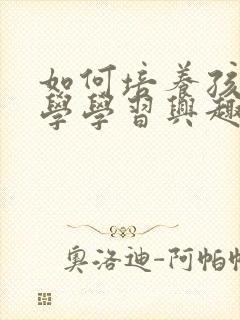 如何培養孩
學學習興趣
奧洛迪-阿帕帕